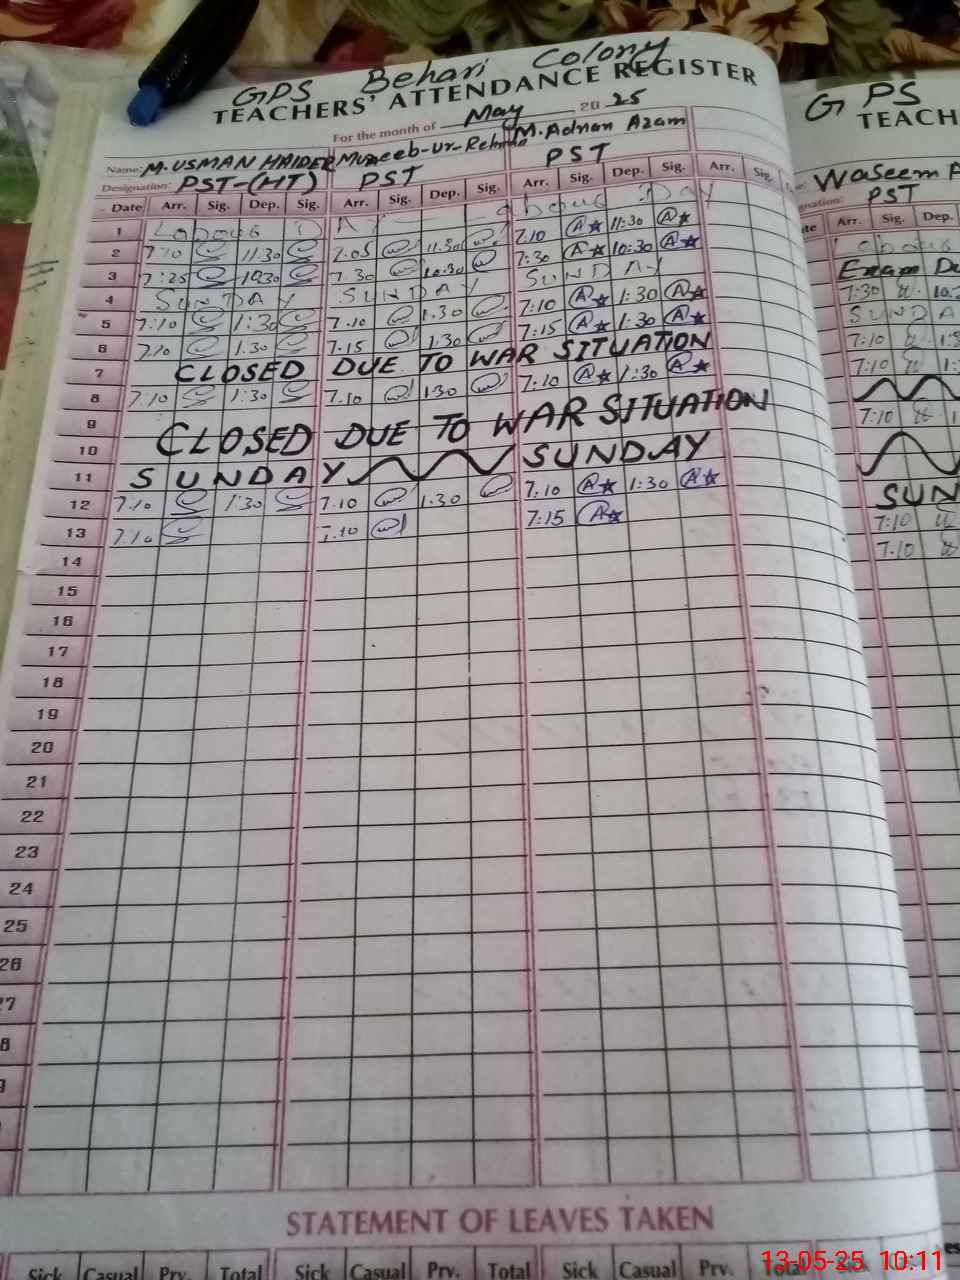 GPS Behari Colony
TEACHERS' ATTENDANCE REGISTER
For the month of May 2025
Name: M. USMAN HAIDER Muneeb-ur-Rehman M. Adnan Azam
Designation: PST-(HT) PST PST
Date Arr. Sig. Dep. Sig. Arr. Sig. Dep. Sig. Arr. Sig. Dep. Sig. Arr. Sig.
1 Labour DAY Labour Day
2 7:10 11:30 7.05 11.30 7:10 11:30
3 7:25 10:30 7.30 10:30 7:30 10:30
4 SUNDAY SUNDAY SUNDAY
5 7:10 1:30 7.10 1.30 7:10 1:30
6 7.10 1.30 7.15 1.30 7:15 1:30
7 CLOSED DUE TO WAR SITUATION
8 7.10 1:30 7.10 1.30 7:10 1:30
9
10 CLOSED DUE TO WAR SITUATION
11 SUNDAY SUNDAY
12 7.10 1:30 7.10 1.30 7:10 1:30
13 7.10 7.10 7:15
14
15
16
17
18
19
20
21
22
23
24
25
26
27
8
9
STATEMENT OF LEAVES TAKEN
Sick Casual Prv. Total Sick Casual Prv. Total Sick Casual Prv. Total
GPS
TEACH
Waseem
PST
Arr. Sig. Dep.
Labour
Exam
7:30
SUNDA
7:10
7:10
7:10
SUN
7:10
7.10
13-05-25 10:11